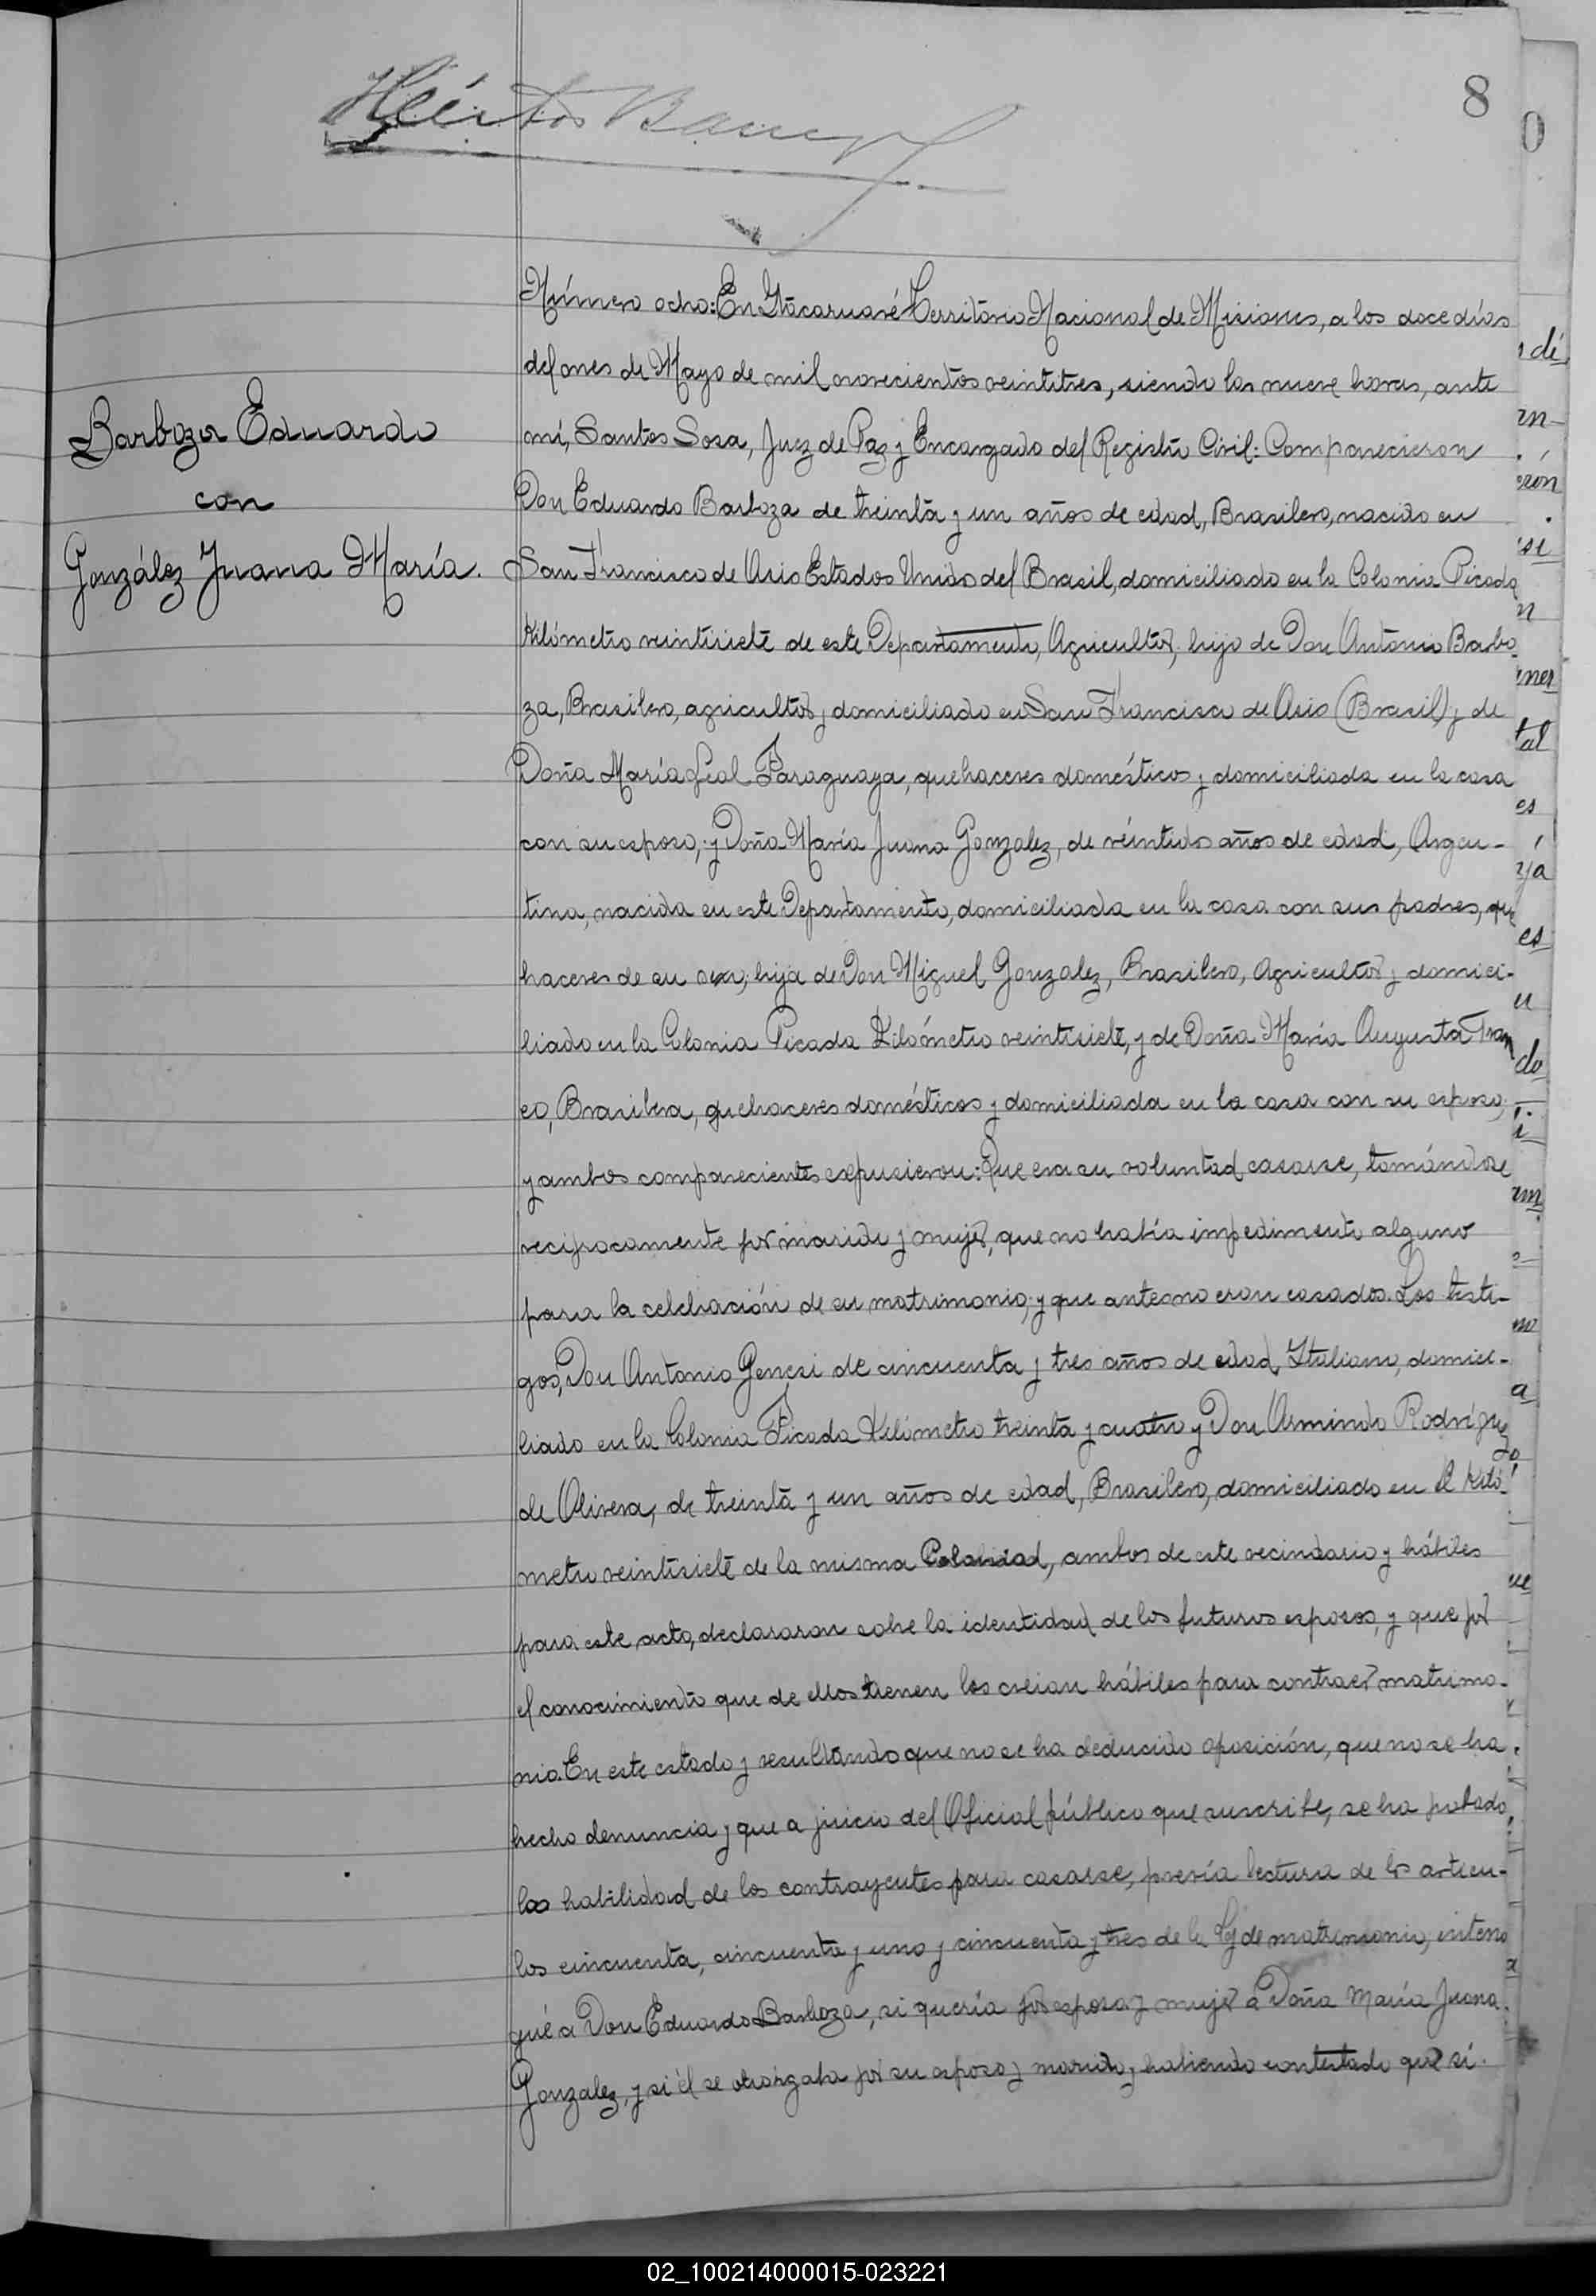 8
Número ocho: En Itacaruaré Territorio Nacional de Misiones, a los doce días
del mes de Mayo de mil novecientos veintitres, siendo las nueve horas, ante
mí, Santos Sosa, Juez de Paz y Encargado del Registro Civil: Comparecieron
Barboza Eduardo
con
González Juana María.
Don Eduardo Barboza de treinta y un años de edad, Brasilero, nacido en
San Francisco de Asis Estados Unidos del Brasil, domiciliado en la Colonia Picada
Kilómetro veintisiete de este Departamento, Agricultor, hijo de Don Antonio Barbo-
za, Brasilero, agricultor y domiciliado en San Francisco de Asis (Brasil) y de
Doña María Leal Paraguaya, quehaceres domésticos y domiciliada en la casa
con su esposo; y Doña María Juana Gonzalez, de veintidos años de edad, Argen-
tina, nacida en este Departamento, domiciliada en la casa con sus padres, que
haceres de su sexo; hija de Don Miguel Gonzalez, Brasilero, Agricultor y domici-
liado en la Colonia Picada Kilómetro veintisiete, y de Doña María Augusta Fran
co, Brasilera, quehaceres domésticos y domiciliada en la casa con su esposo;
y ambos comparecientes expusieron: Que era su voluntad casarse, tomándose
reciprocamente por marido y mujer, que no había impedimento alguno
para la celebración de su matrimonio; y que antes no eran casados. Los testi-
gos, Don Antonio Genesi de cincuenta y tres años de edad, Italiano, domici-
liado en la Colonia Picada Kilómetro treinta y cuatro y Don Armindo Rodríguez
de Olivera, de treinta y un años de edad, Brasilero, domiciliado en el Kiló-
metro veintisiete de la misma, ambos de este vecindario y hábiles
para este acto, declararon sobre la identidad de los futuros esposos, y que por
el conocimiento que de ellos tienen los creian hábiles para contraer matrimo-
nio. En este estado y resultando que no se ha deducido oposición, que no se ha
hecho denuncia y que a juicio del Oficial público que suscribe, se ha probado
la habilidad de los contrayentes para casarse, previa lectura de los artícu-
los cincuenta, cincuenta y uno y cincuenta y tres de la Ley de matrimonio, interro
gué a Don Eduardo Barboza, si quería por esposa y mujer a Doña María Juana
Gonzalez, y si él se otorgaba por su esposo y marido, y habiendo contestado que sí.
02_100214000015-023221